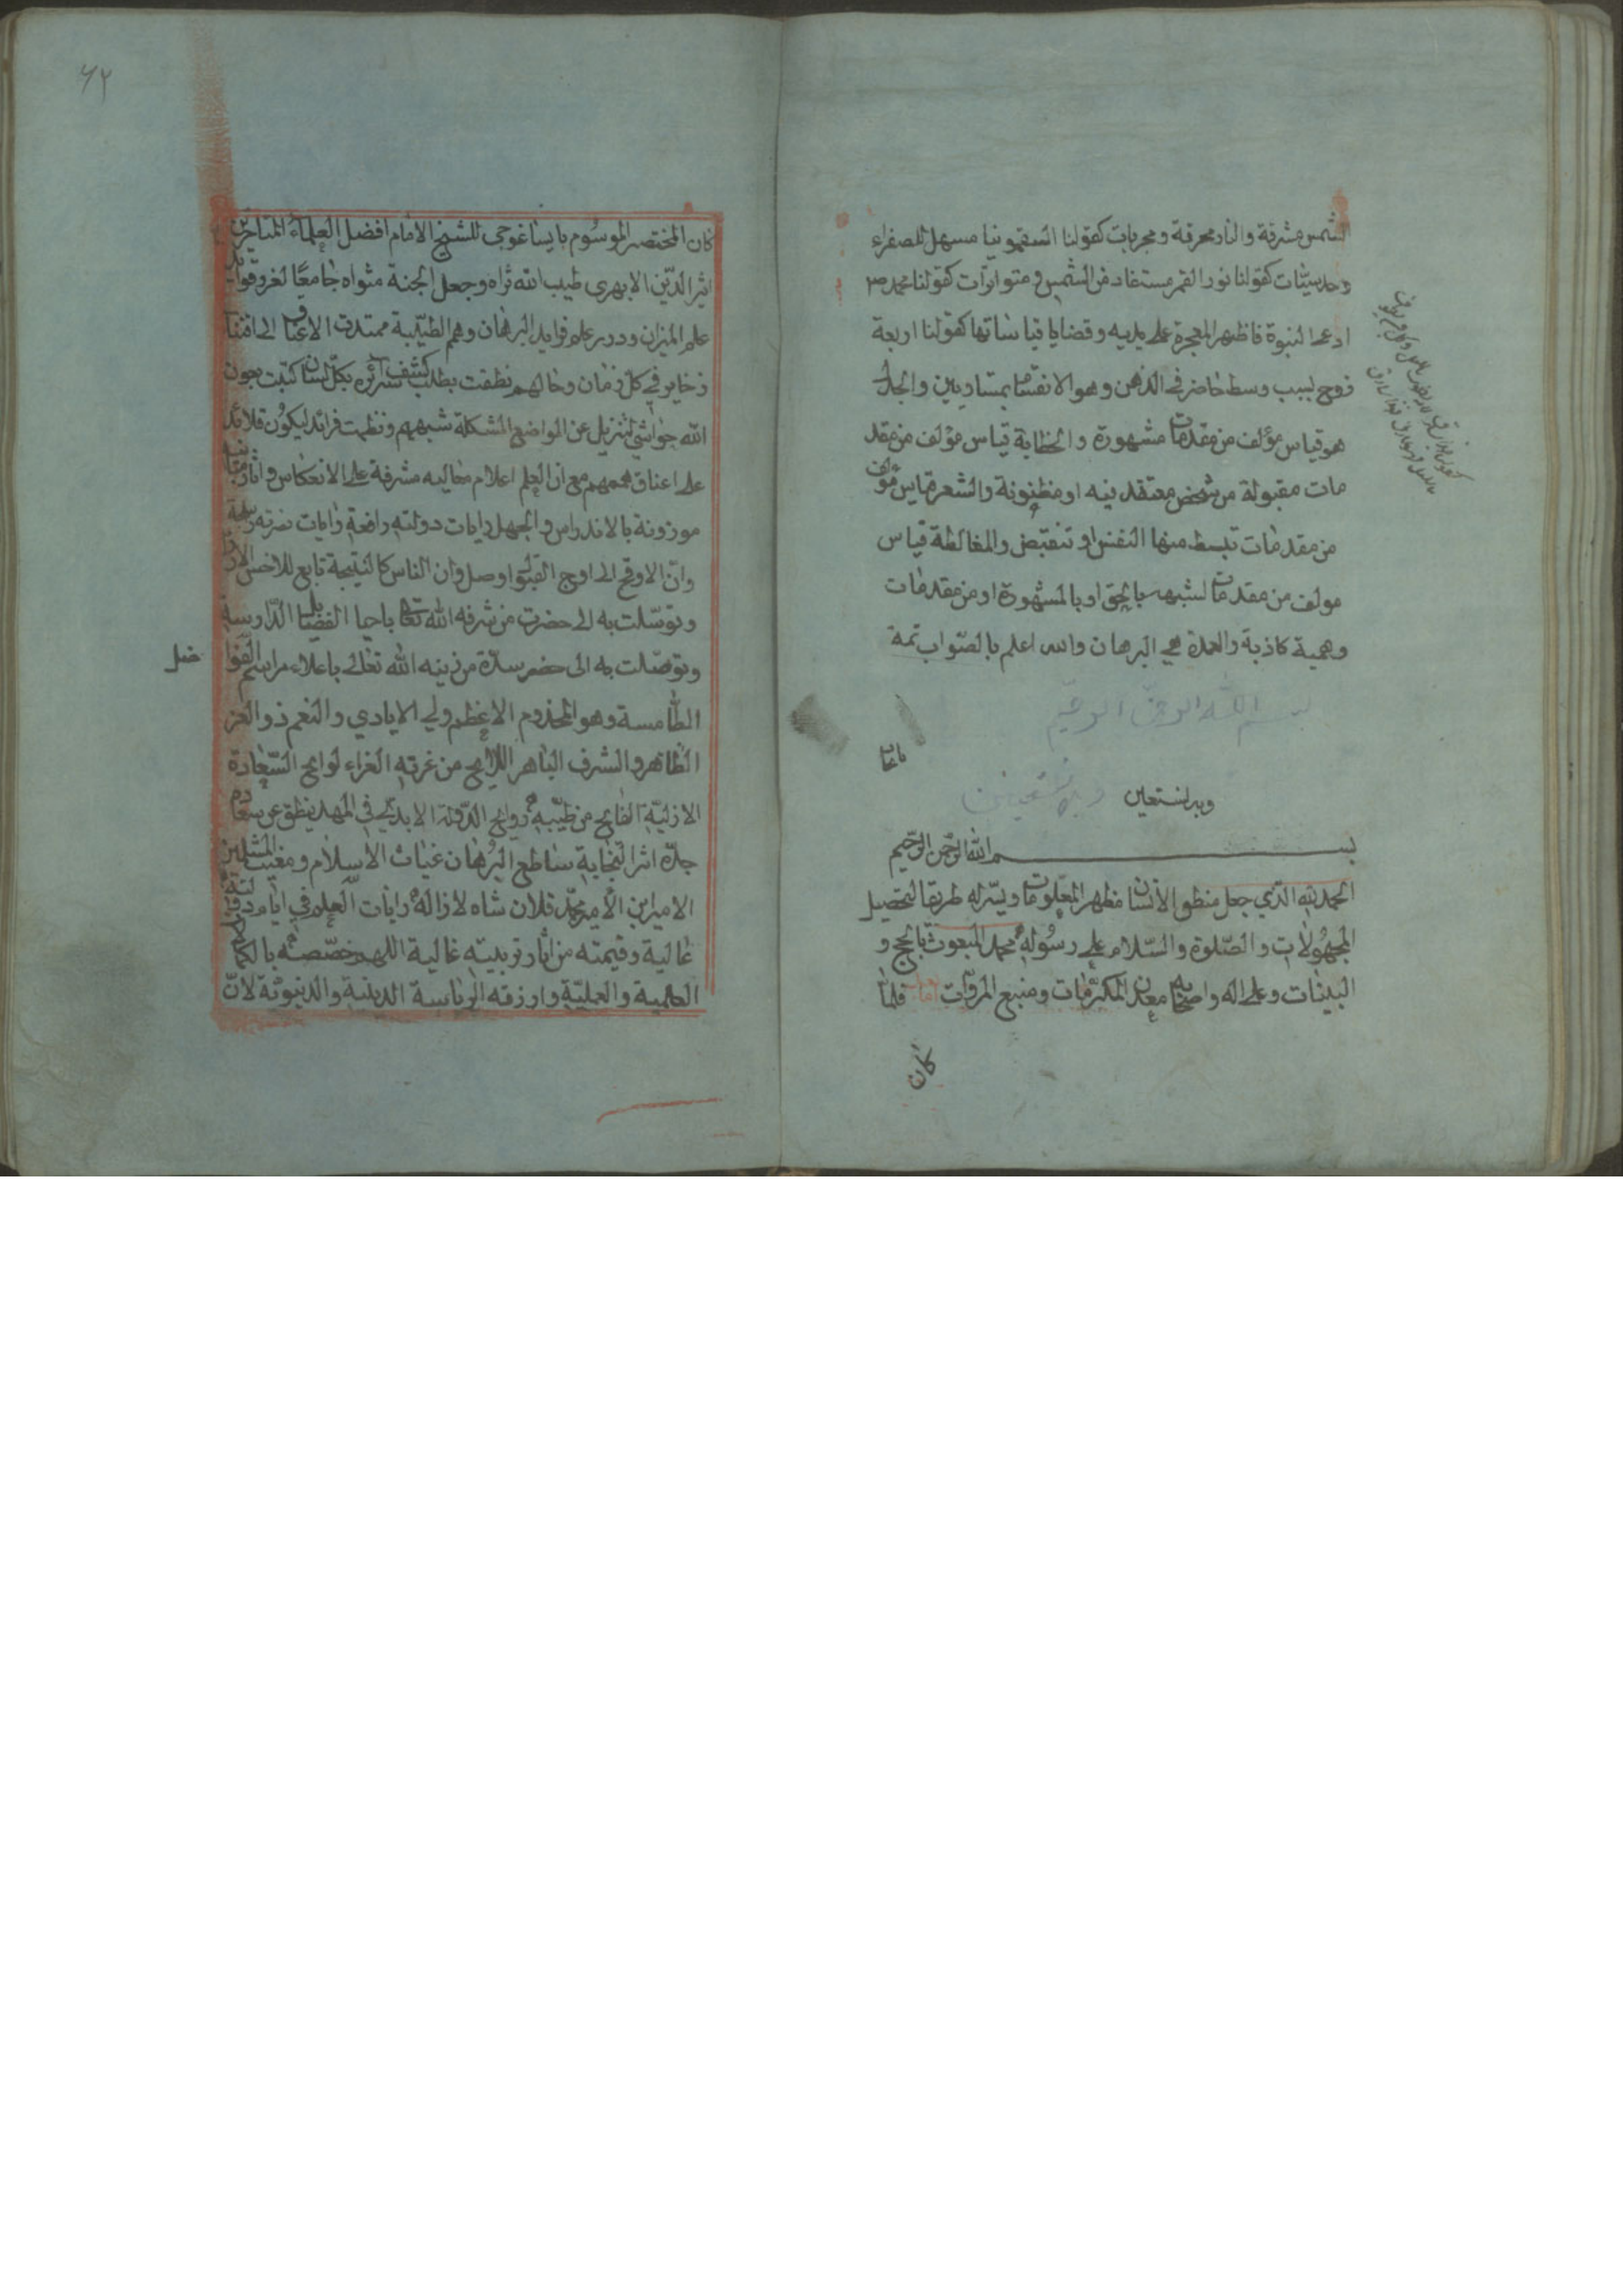 الشمس مشرقة والنار محرقة ومجربات كقولنا السقمونيا مسهل للصفراء
وحدسيّات كقولنا نور القمر مستفاد من الشمس ومتواترات كقولنا محمد ص
ادعى النبوة فاظهر المعجزة على يديه وقضايا قياساتها كقولنا اربعة
زوج لسبب وسط حاضر في الذهن وهو الانقسام بمتساويين والجدل
هو قياس مؤلف من مقدمات مشهورة والخطابة قياس مؤلف من مقد
مات مقبولة من شخص معتقد فيه او مظنونة والشعر قياس مؤلف
من مقدمات تبسط منها النفس او تنقبض والمغالطة قياس
مولف من مقدمات لشبهه بالحق او بالمشهورة او من مقدمات
وهمية كاذبة والعمدة هي البرهان والله اعلم بالصّواب تمة
بسم الله الرحمن الرحيم
وبه نستعين وبه نستعين
بسم الله الرّحمن الرّحيم
الحمد لله الّذي جعل منطق الأنسان مظهر المعلومات ويسّر له طريقا لتحصيل
المجهولات والصّلوة والسّلام على رسوله محمد المبعوث بالحجج و
البينات وعلى اله واصحابه معدن المكرّمات ومنبع المروّات اما بعد فلمّا
كان
۶۲
كان المختصر الموسوم بايساغوجي للشيخ الامام افضل العلماء المتاخرين
اثير الدّين الابهري طيب الله ثراه وجعل الجنة مثواه جامعًا لغرر فوايد
علم الميزان ودرر علم فوايد البرهان وهم الطيّبة ممتدة الاعناق الى اقتنا
ذخايره في كل زمان وحالهم نطقت بطلب كشف سرائره بكلّ لسان كتبت بعون
الله حواشي لتزيل عن المواضع المشكلة شبههم ونظمت فرائد ليكون قلائد
على اعناق هممهم مع ان العلم اعلام معاليه مشرفة على الانعكاس واثار مبانيه
موزونة بالاندراس والجهل رايات دولته رافعة وايات نصرته
وانّ الاوقح الى اوج القبول اوصل وان الناس كالنتيجة تابع للاخس الارذل
وتوسّلت به الى حضرت من شرفه الله تعالى باحيا الفضايل الدّارسة
وتوصّلت به الى حضر سدّة من زينه الله تعالى باعلاء مراسم الفوا
ضل
الطّامسة وهو المخدوم الاعظم ولي الايادي والنعم ذو العز
الطّاهر والشرف الباهر اللايح من غرته الغراء لوايح السّعادة
الازليّة الفايح من طيّبه روايح الدّولة الابديّة في المهد ينطق عن سعادم
جدّه اثر النّجابة ساطع البرهان غياث الاسلام ومغيث المسلمين
الامير ابن الأمير محمّد فلان شاه لازاله رايات العلم في ايام دولته
عالية وقيمته من اثار تربيته غالية اللهم خصّصه بالكمالات
العلمية والعمليّة وارزقه الرئاسة الدينية والدنيويّة لانّ